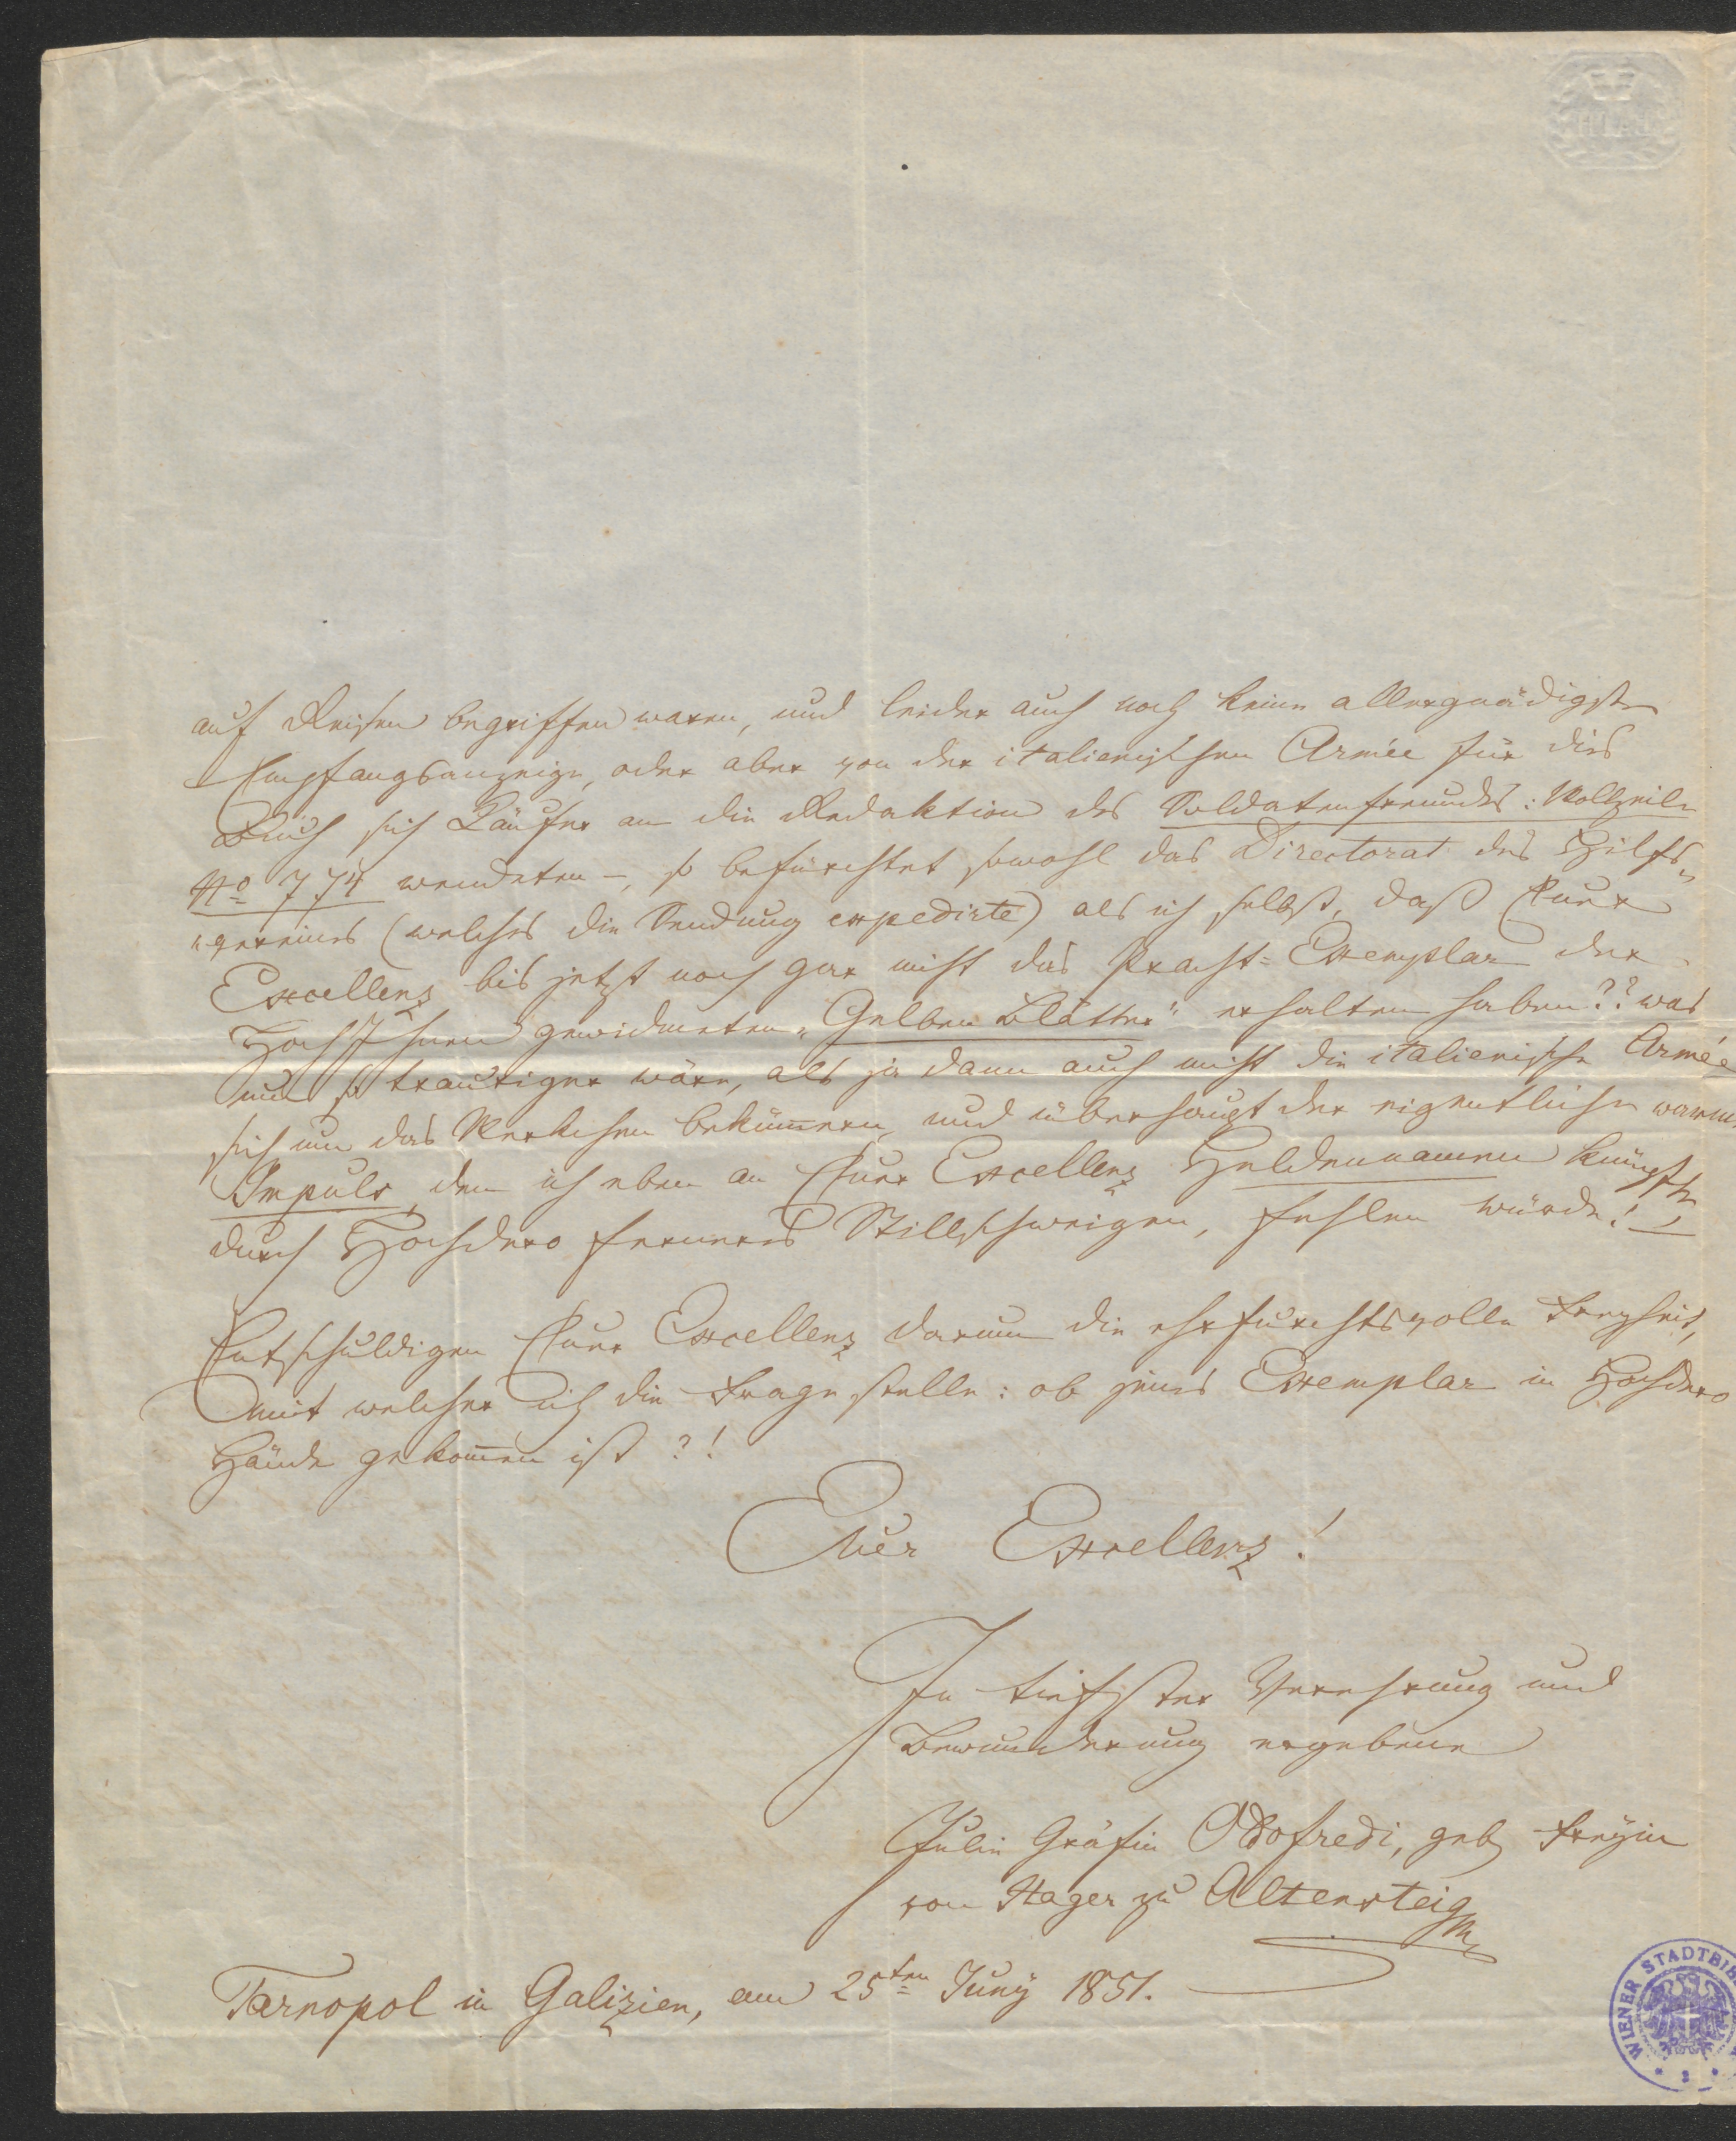 BATH
auf Reisen begriffen waren, und leider auch noch keine allergnädigste
Empfangsanzeige, oder aber von der italienischen Armée für dies
Buch sich Käufer an die Redaktion des Soldatenfreundes: Wollzeile
No 774 wendeten –, so befürchtet sowohl das Directorat des Hilfs„
„vereines (welches die Sendung expedirte) als ich selbst, daß Euer
Excellenz bis jetzt noch gar nicht das Pracht= Exemplar der
Hochihnen gewidmeten „Gelben Blätter“ erhalten haben?? was
um so trauriger wäre, als ja dann auch nicht die italienische Armée
sich um das Werkchen bekümmern, und überhaupt der eigentliche warme
Impuls, den ich eben an Euer Excellenz Heldennamen knüpfte
durch Hochdero ferneres Stillschweigen, fehlen würde!
Entschuldigen Euer Excellenz darum die ehrfurchtsvolle Freyheit,
mit welcher ich die Frage stelle: ob jenes Exemplar in Hochdero
Hände gekommen ist?!
Euer Excellenz!
In tiefster Verehrung und
Bewunderung ergebene
Julie Gräfin Oldofredi, geb Freyin
von Hager zu Altensteig
Tarnopol in Galizien, am 25ten Juny 1851.
WIENER STADTBIB